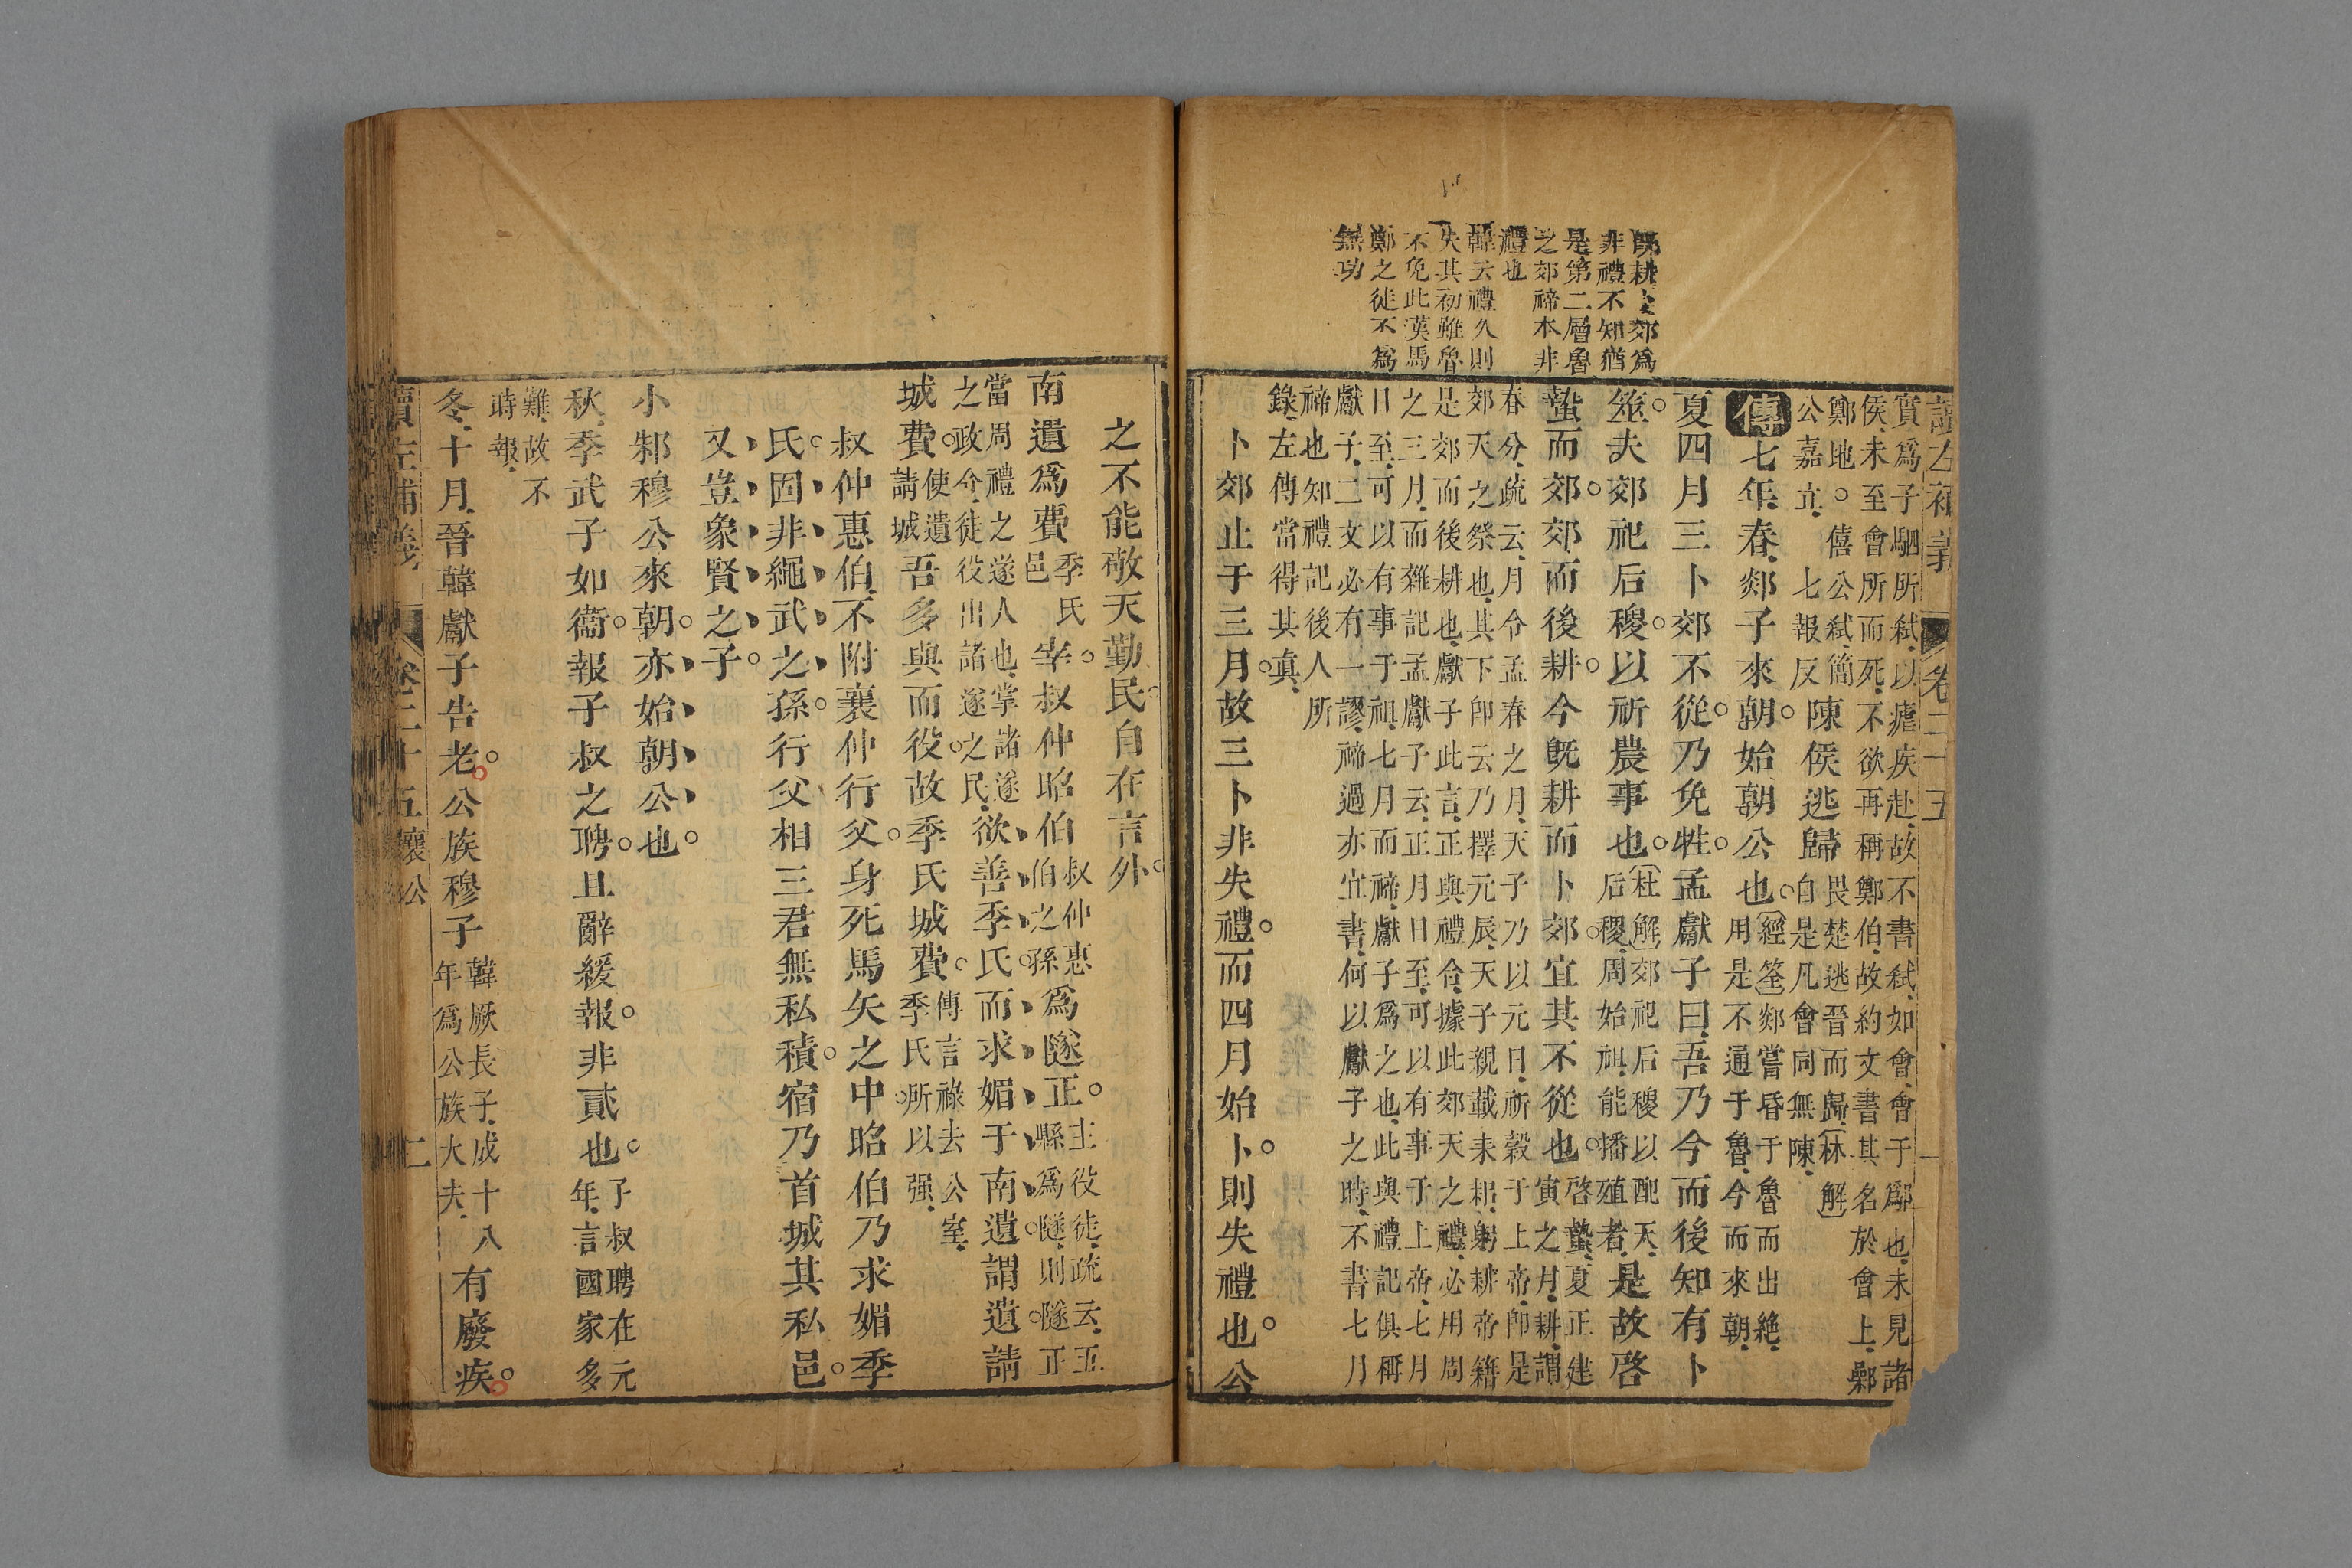 既耕卜郊爲
非禮不知猶
是第二層魯
之郊禘本非
禮也
韓云禮久則
失其初雖魯
不免此漢馬
鄭之徒不爲
無功
讀左補義 卷二十五
實爲子駟所弑以瘧疾赴故不書弑如會會于鄬也未見諸
侯未至會所而死不欲再稱鄭伯故約文書其名於會上鄵
鄭地。僖公弑簡
公嘉立 七報反
陳侯逃歸
畏楚逃晉而歸林解
自是凡會同無陳
傳七年春郯子來朝始朝公也
經筌郯嘗昏于魯而出絶
用是不通于魯今而來朝
夏四月三卜郊不從乃免牲孟獻子曰吾乃今而後知有卜
筮夫郊祀后稷以祈農事也
杜解郊祀后稷以配天
后稷周始祖能播殖者
是故啓
蟄而郊郊而後耕今既耕而卜郊宜其不從也
啓蟄夏正建
寅之月耕謂
春分疏云月令孟春之月天子乃以元日祈穀于上帝即是
郊天之祭也其下即云乃擇元辰天子親載耒耜躬耕帝籍
是郊而後耕也獻子此言正與禮合據此郊天之禮必用周
之三月而雜記孟獻子云正月日至可以有事于上帝七月
日至可以有事于祖七月而禘獻子爲之也此與禮記俱稱
獻子二文必有一謬禘過亦宜書何以獻子之時不書七月
禘也知禮記後人所
錄左傳當得其真
卜郊止于三月故三卜非失禮而四月始卜則失禮也公
之不能敬天勤民自在言外
南遺爲費
季氏
邑
宰叔仲昭伯
叔仲惠
伯之孫
爲隧正
主役徒疏云五
縣爲隧則隧正
當周禮之遂人也掌諸遂
之政令徒役出諸遂之民
欲善季氏而求媚于南遺謂遺請
城費
使遺
請城
吾多與而役故季氏城費
傳言祿去公室
季氏所以强
叔仲惠伯不附襄仲行父身死馬矢之中昭伯乃求媚季
氏固非繩武之孫行父相三君無私積宿乃首城其私邑
又豈象賢之子
小邾穆公來朝亦始朝公也
秋季武子如衞報子叔之聘且辭緩報非貳也
子叔聘在元
年言國家多
難故不
時報
冬十月晉韓獻子告老公族穆子
韓厥長子成十八
年爲公族大夫
有廢疾
讀左補義 卷二十五 襄公 二